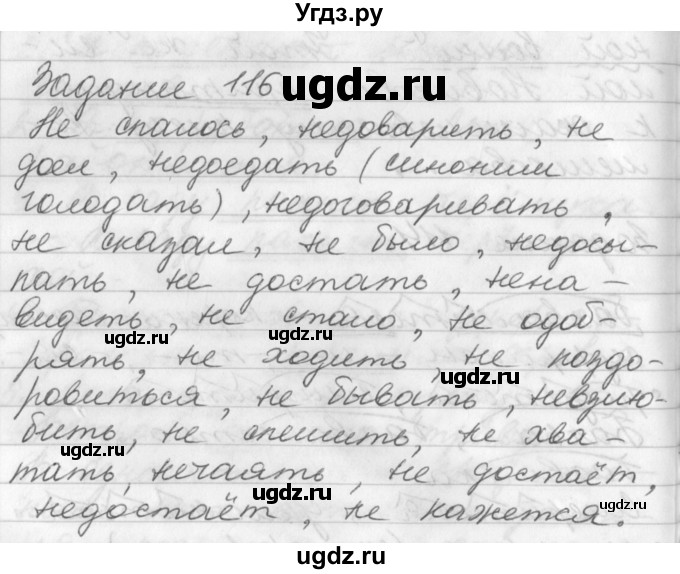 Угдз.ру
Задание 116 ugdz.ru
Не спалось, недоварить, не
доел, недоедать (синоним
голодать), недоговаривать,
не сказал, не было, недосы-
пать, не достать, нена-
видеть, не стало, не одоб-
ugdz.ru
рять, не ходить, не поздо-
ugdz.ru
ровиться, не бывать, невзлю-
бить, не спешить, не хва-
тать, нечаять, не достаёт,
ugdz.ru
ugdz.ru
недостаёт, не кажется.
ugdz.ru